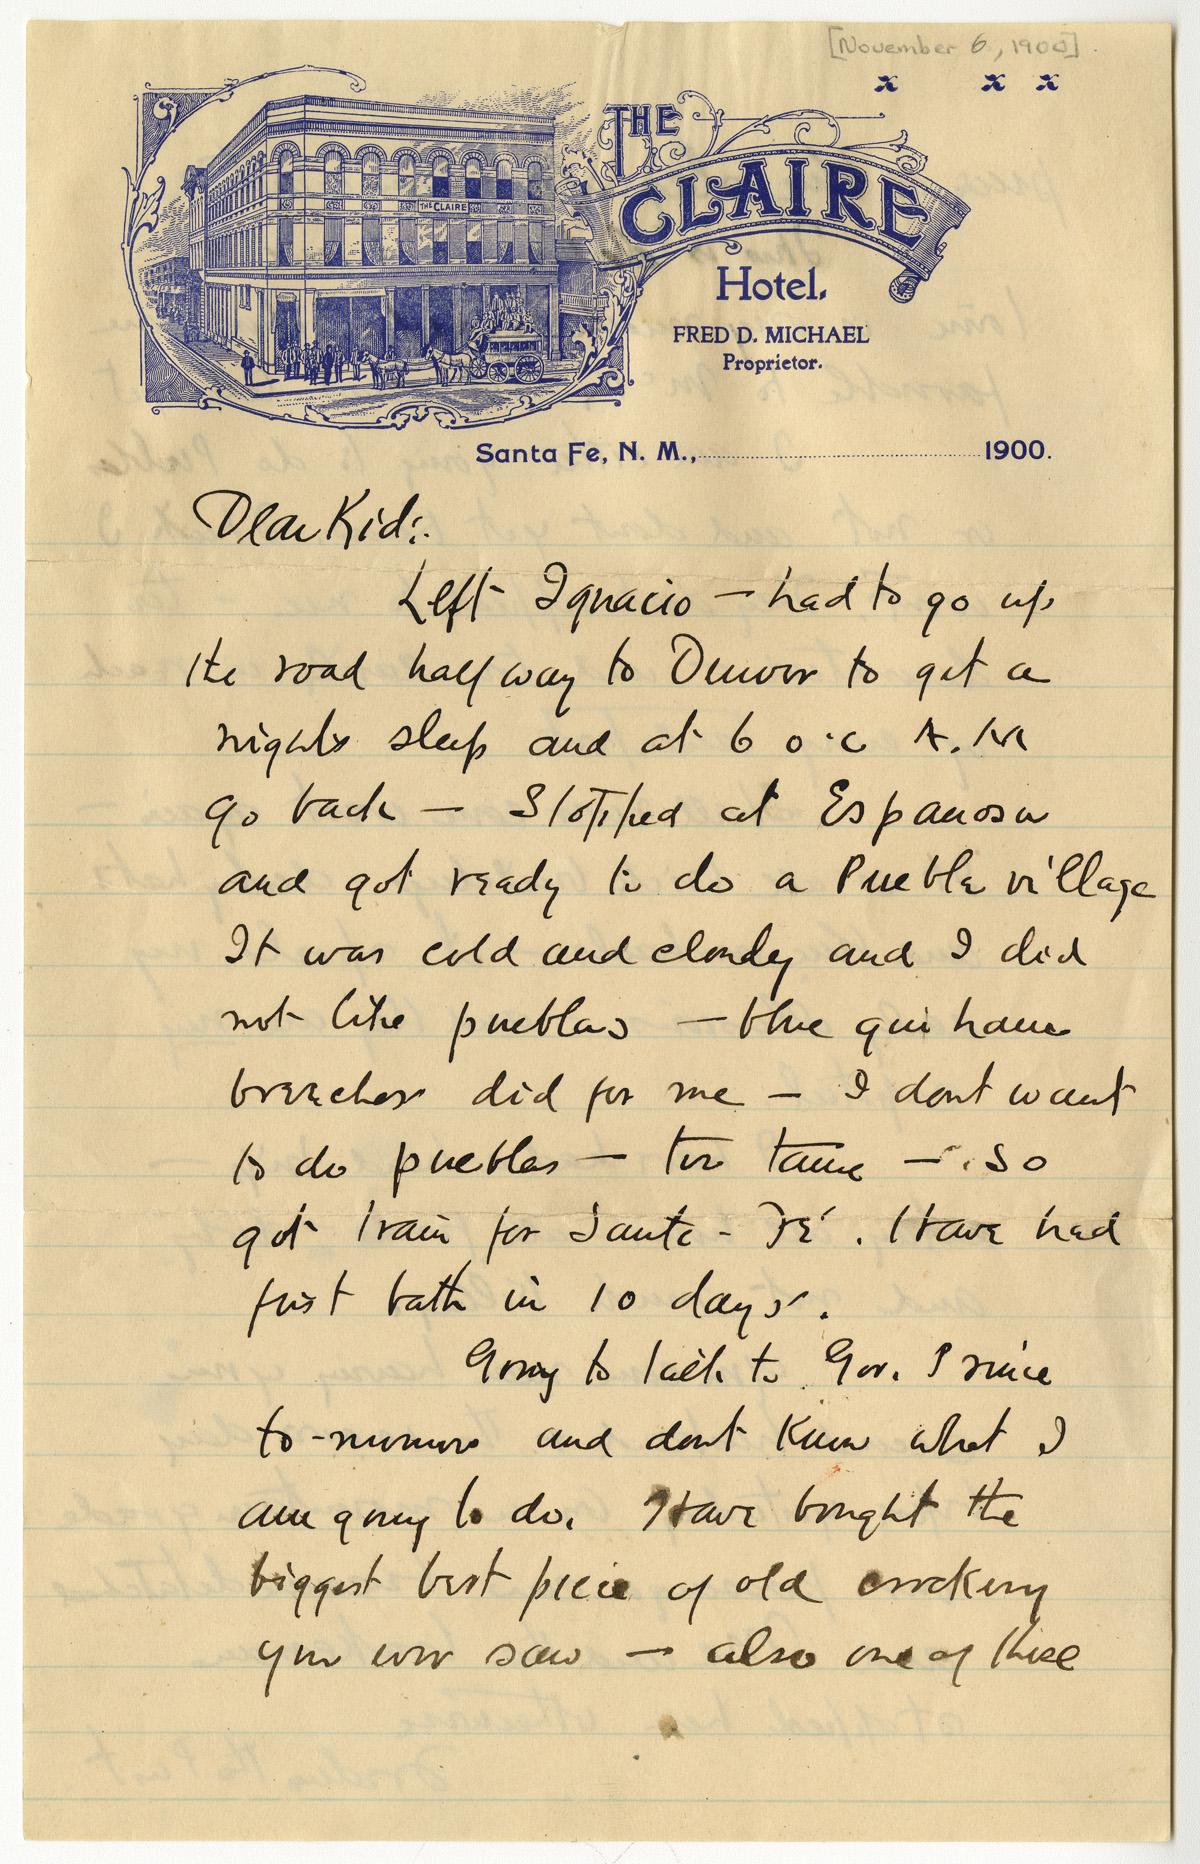 [November 6, 1900].
x x x
THE CLAIRE
THE
CLAIRE
Hotel.
FRED D. MICHAEL
Proprietor.
Santa Fe, N. M., 1900.
Dear Kid:-
Left Ignacio — had to go up
the road half way to Denver to get a
nights sleep and at 6 o'c A.M
go back — Stopped at Espanosa
and got ready to do a Puebla village
It was cold and cloudy and I did
not like pueblas — blue gingham
breeches did for me — I dont want
to do pueblas — too tame — . So
got train for Santa - Fé . Have had
first bath in 10 days .
Going to talk to Gov. Prince
to-morrow and dont know what I
am going to do. Have bought the
biggest best piece of old crockery
you ever saw — also one of these